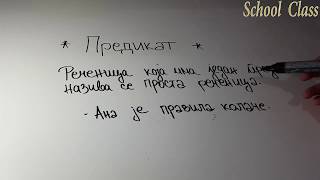 School Class
* Предикат *
Реченица која има један
назива се проста реченица.
- Ана је правила колаче.